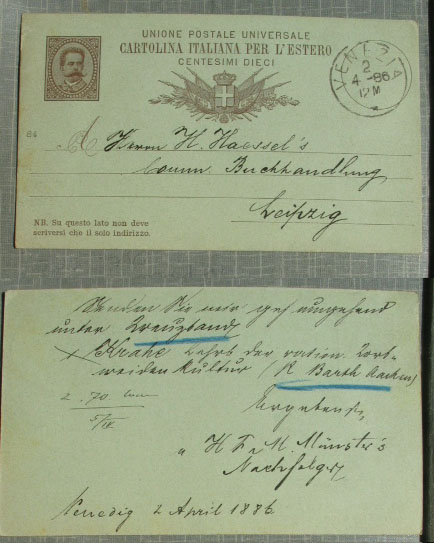 UNIONE POSTALE UNIVERSALE
CARTOLINA ITALIANA PER L'ESTERO
CENTESIMI DIECI
VENEZIA
2
4-86
12 M
84
Herrn H. Haessel's
Comm. Buchhandlung
Leipzig
NB. Su questo lato non deve
scriversi che il solo indirizzo.
Senden Sie mir gef umgehend
unter Kreuzband
Krahe Lehrb der ration. Korb-
weiden Kultur (R Barth Aachen)
2.70
5/IV
Ergebenst
H F & M. Münster's
Nachfolger
Venedig 2 April 1886